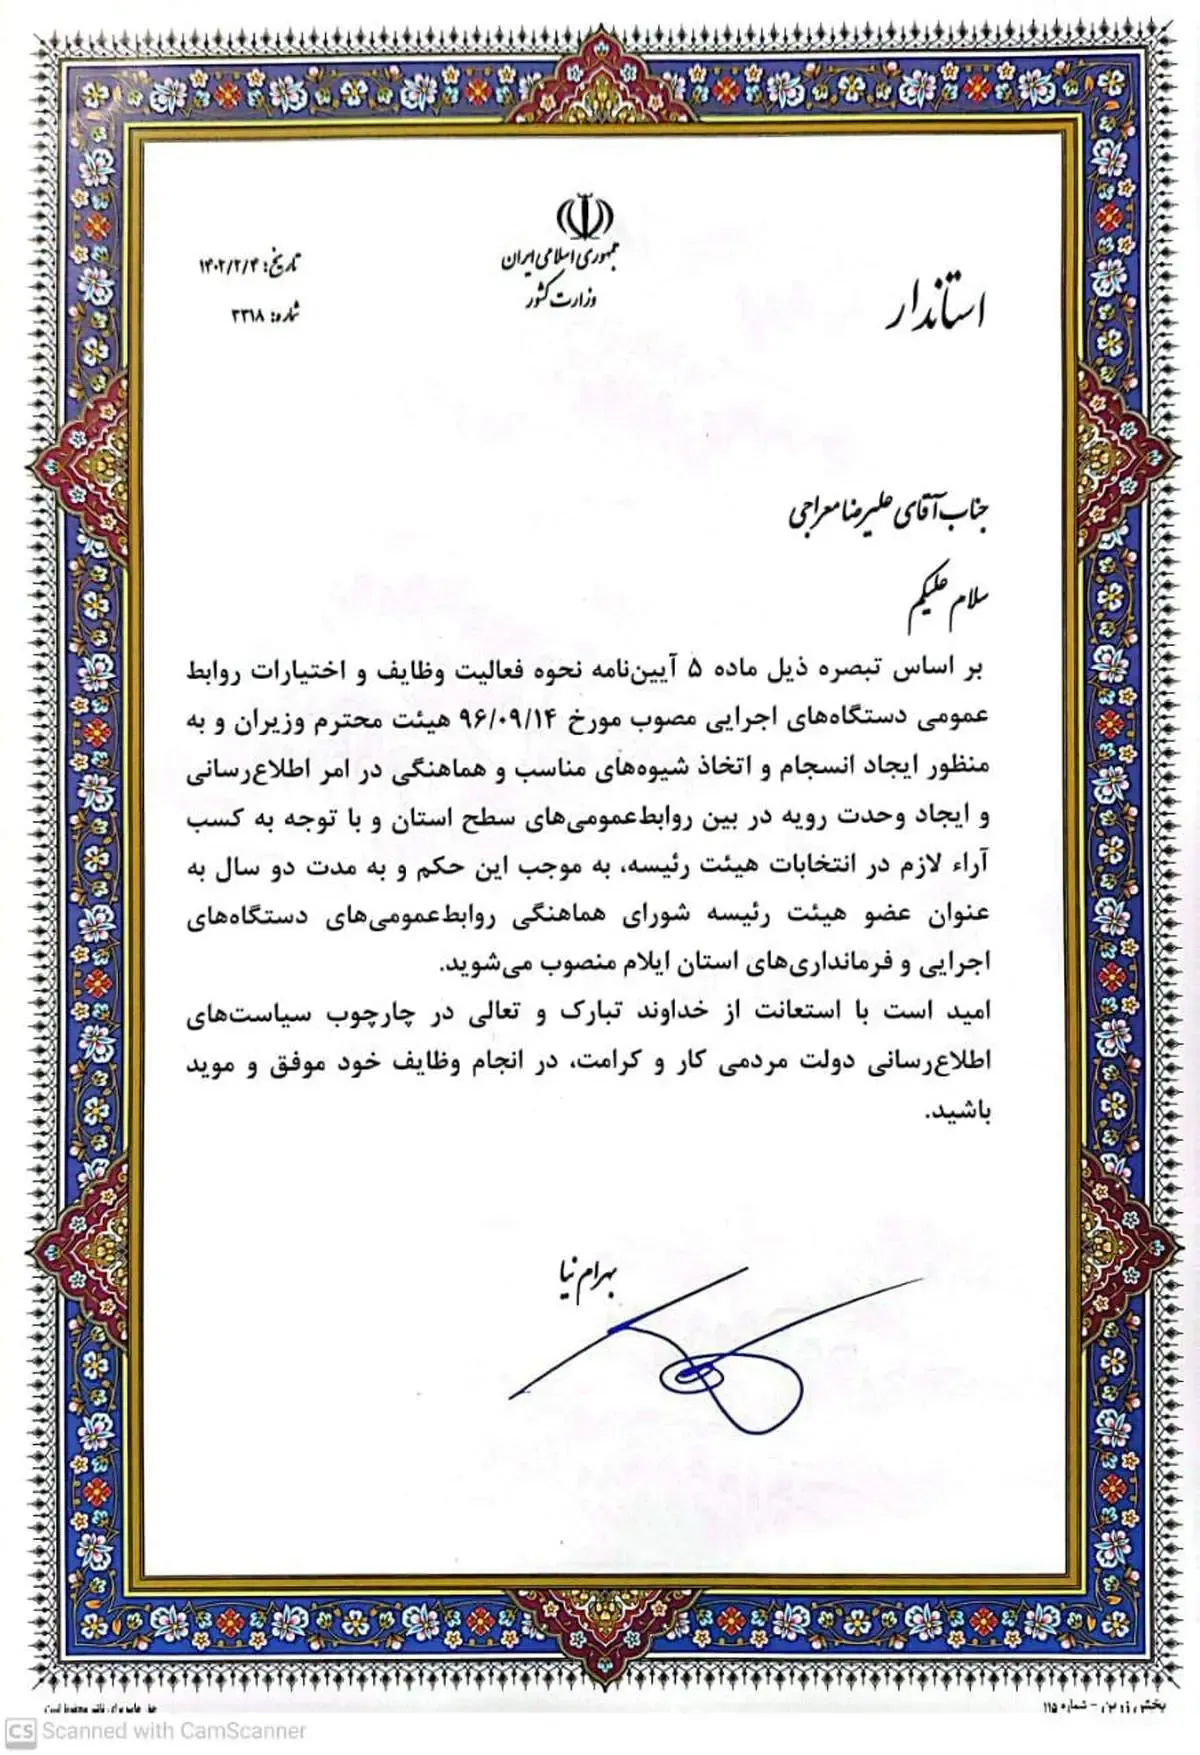 جمهوری اسلامی ایران
وزارت کشور
استاندار
تاریخ: ۱۴۰۲/۲/۴
شماره: ۳۳۱۸
جناب آقای علیرضا معراجی
سلام علیکم
بر اساس تبصره ذیل ماده ۵ آیین‌نامه نحوه فعالیت وظایف و اختیارات روابط
عمومی دستگاه‌های اجرایی مصوب مورخ ۹۶/۰۹/۱۴ هیئت محترم وزیران و به
منظور ایجاد انسجام و اتخاذ شیوه‌های مناسب و هماهنگی در امر اطلاع‌رسانی
و ایجاد وحدت رویه در بین روابط‌عمومی‌های سطح استان و با توجه به کسب
آراء لازم در انتخابات هیئت رئیسه، به موجب این حکم و به مدت دو سال به
عنوان عضو هیئت رئیسه شورای هماهنگی روابط‌عمومی‌های دستگاه‌های
اجرایی و فرمانداری‌های استان ایلام منصوب می‌شوید.
امید است با استعانت از خداوند تبارک و تعالی در چارچوب سیاست‌های
اطلاع‌رسانی دولت مردمی کار و کرامت، در انجام وظایف خود موفق و موید
باشید.
بهرام نیا
پخش زرین - شماره ۱۱۵
حق چاپ برای ناشر محفوظ است
CS Scanned with CamScanner